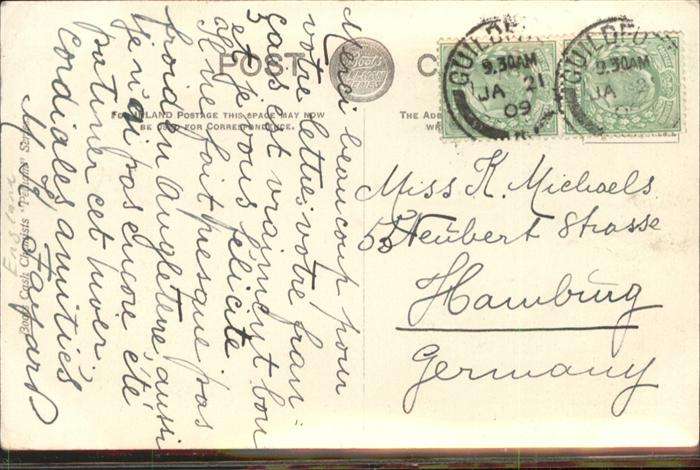 POST C
Boots Cash Chemists
FOR INLAND POSTAGE THIS SPACE MAY NOW
BE USED FOR CORRESPONDENCE.
THE ADD
WR
GUILDFO
9.30AM
JA 21
09
GUILDFO
9.30AM
JA
Merci beaucoup pour
votre lettre, votre fran-
çais est vraiment bon
et je vous félicite
Il ne fait presque pas
froid en Angleterre, aussi
je n'ai pas encore été
patiner cet hiver.
Cordiales amitiés
England
Miss K. Michaels
53 Heubert Strasse
Hamburg
Germany